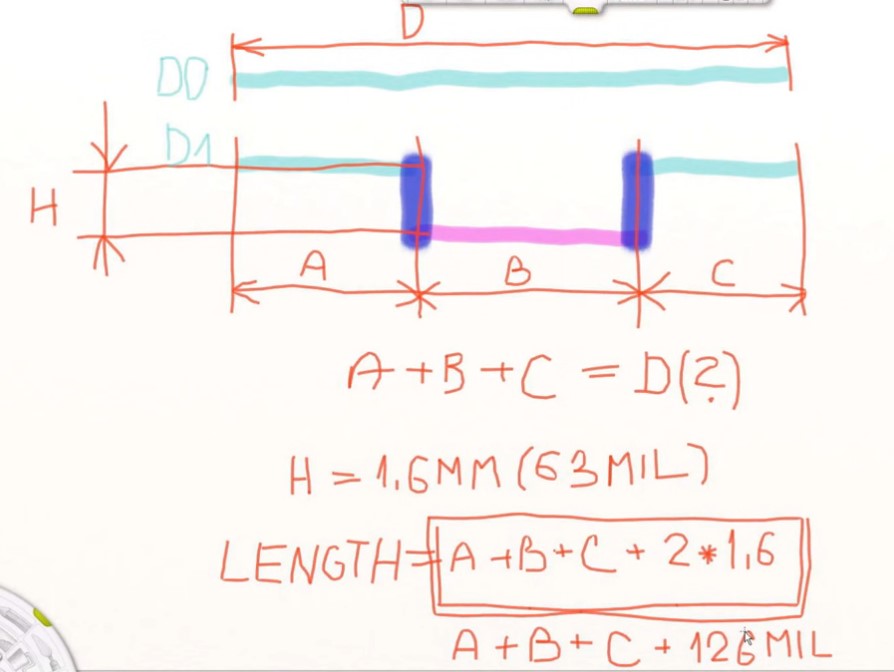 D
D0
D1
H
A B C
A+B+C = D(?)
H = 1.6MM (63MIL)
LENGTH= A+B+C + 2*1,6
A+B+C + 126MIL